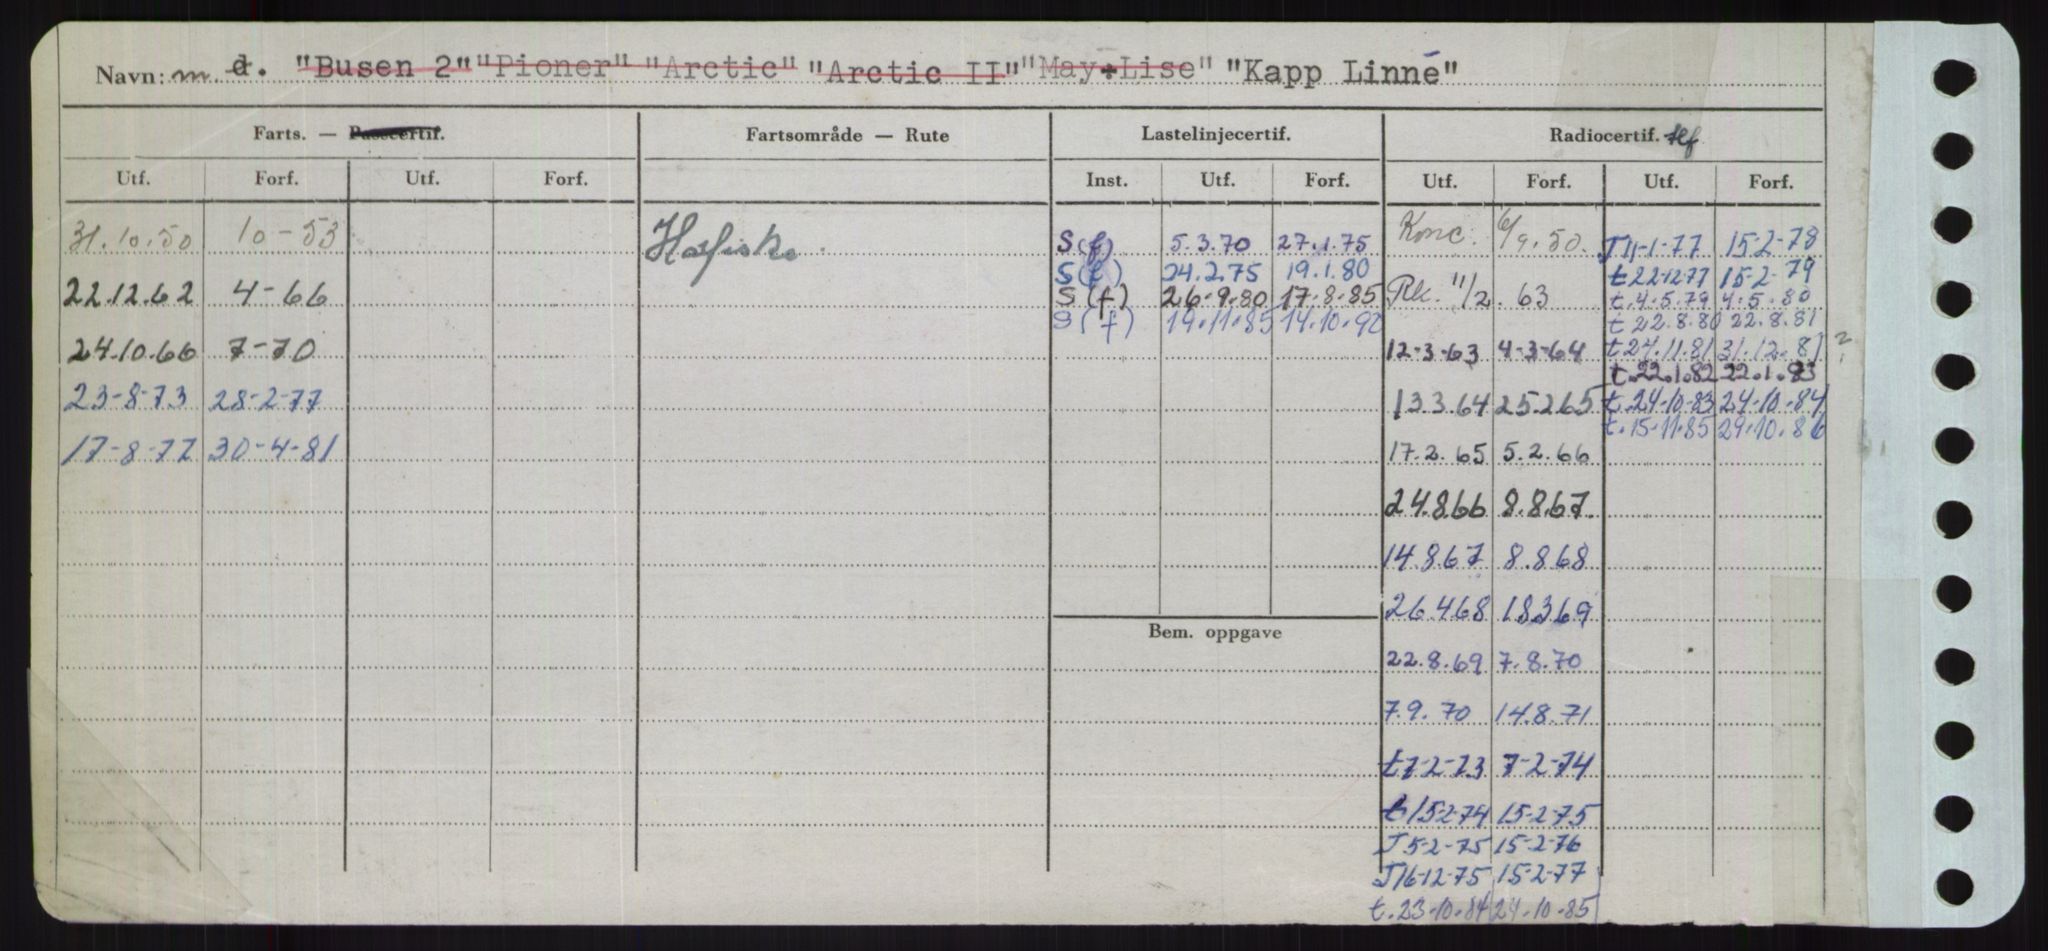 Navn: m d. "Busen 2" "Pioner" "Arctic" "Arctic II" "May-Lise" "Kapp Linné"
Farts. — Passcertif. Fartsområde — Rute Lastelinjecertif. Radiocertif. tlf
Utf. Forf. Utf. Forf. Inst. Utf. Forf. Utf. Forf. Utf. Forf.
31.10.50 10-53 Havfiske. S(f) 5.3.70 27.1.75 Konc. 6/9.50. T11-1-77 15-2-78
S(f) 24.2.75 19.1.80 t 22-12-77 15-2-79
22.12.62 4-66 S(f) 26-9-80 17-8-85 Rk. 11/2. 63 t.4.5.79 4.5.80
S(f) 19.11.85 14.10.90 t 22.8.80 22.8.81
24.10.66 7-70 12-3-63 4-3-64 t 24.11.81 31.12.81 ?
t.22.1.82 22.1.83
23-8-73 28-2-77 13.3.64 25.2.65 t.24.10.83 24.10.84
t.15.11.85 29.10.86
17-8-77 30-4-81 17.2.65 5.2.66
24.8.66 8.8.67.
14.8.67 8.8.68
26.4.68 18.3.69
Bem. oppgave
22.8.69 7.8.70
7.9.70 14.8.71
t7-2-73 7-2-74
t 15-2-74 15-2-75
T 5-2-75 15-2-76
T16-12-75 15-2-77
t.23.10.84 24.10.85